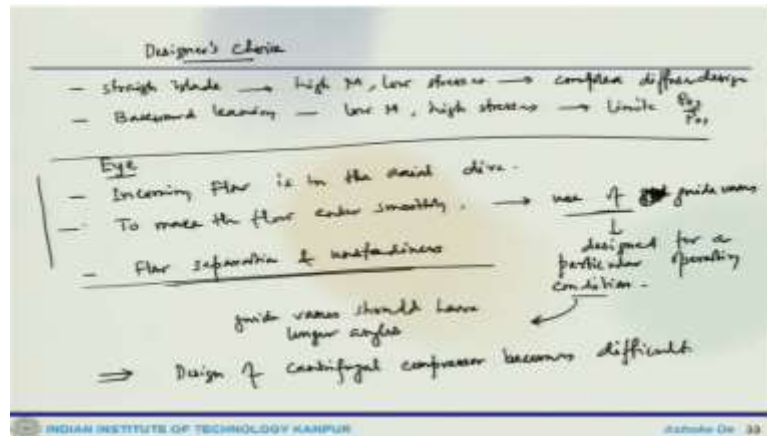 Designer's Choice
- straigh blade → high M, low stresses → complex diffuser design
- Backward leaning - low M, high stresses → Limit P03/P01
Eye
- Incoming Flow is in the axial dirn.
- To make the flow enter smoothly. → use of guide vanes
- Flow separation & unsteadiness
↓
designed for a
particular operating
condition.
guide vanes should have
longer angles
⇒ Design of centrifugal compressor becomes difficult
INDIAN INSTITUTE OF TECHNOLOGY KANPUR
Ashoke De 33